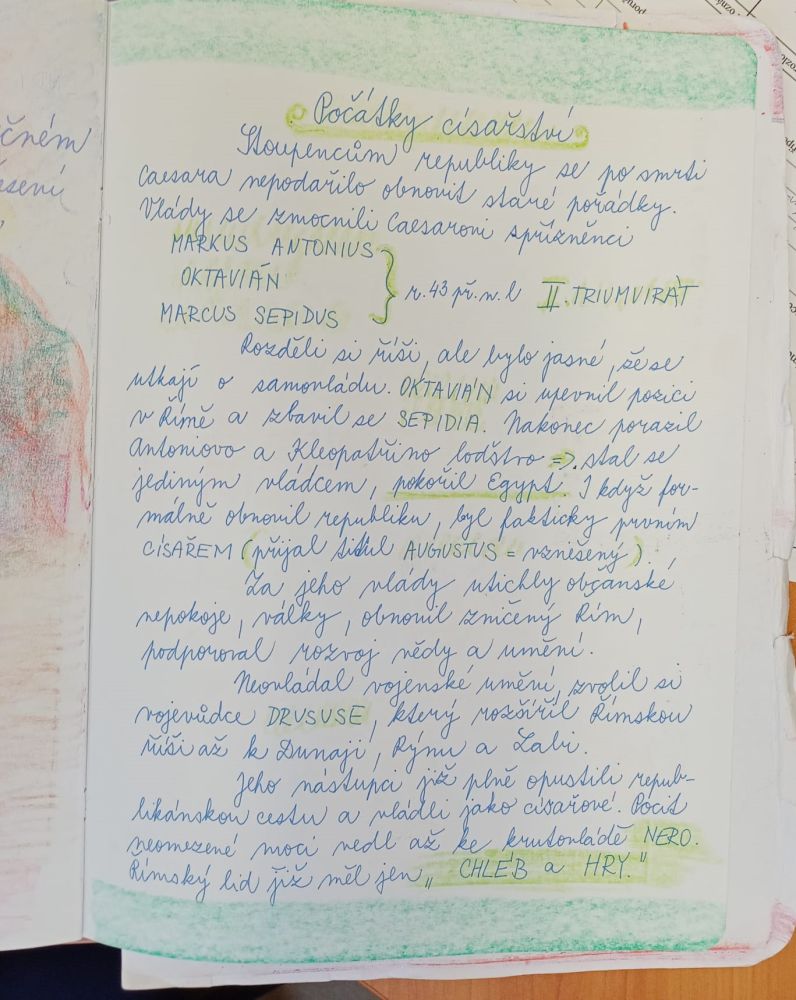 čném
Počátky císařství
Stoupencům republiky se po smrti
Caesara nepodařilo obnovit staré pořádky.
Vlády se zmocnili Caesarovi spřízněnci
MARKUS ANTONIUS
OKTAVIÁN
MARCUS SEPIDUS
r. 43 př. n. l II. TRIUMVIRÁT
Rozděli si říši, ale bylo jasné, že se
utkají o samovládu. OKTAVIÁN si upevnil pozici
v Římě a zbavil se SEPIDIA. Nakonec porazil
Antoniovo a Kleopatřino loďstvo => stal se
jediným vládcem, pokořil Egypt. I když for-
málně obnovil republiku, byl fakticky prvním
CÍSAŘEM (přijal titul AUGUSTUS = vznešený).
Za jeho vlády utichly občanské
nepokoje, války, obnovil zničený Řím,
podporoval rozvoj vědy a umění.
Neovládal vojenské umění, zvolil si
vojevůdce DRUSUSE, který rozšířil Římskou
říši až k Dunaji, Rýnu a Labi.
Jeho nástupci již plně opustili repub-
likánskou cestu a vládli jako císařové. Pocit
neomezené moci vedl až ke krutovládě NERO.
Římský lid již měl jen „CHLÉB a HRY."